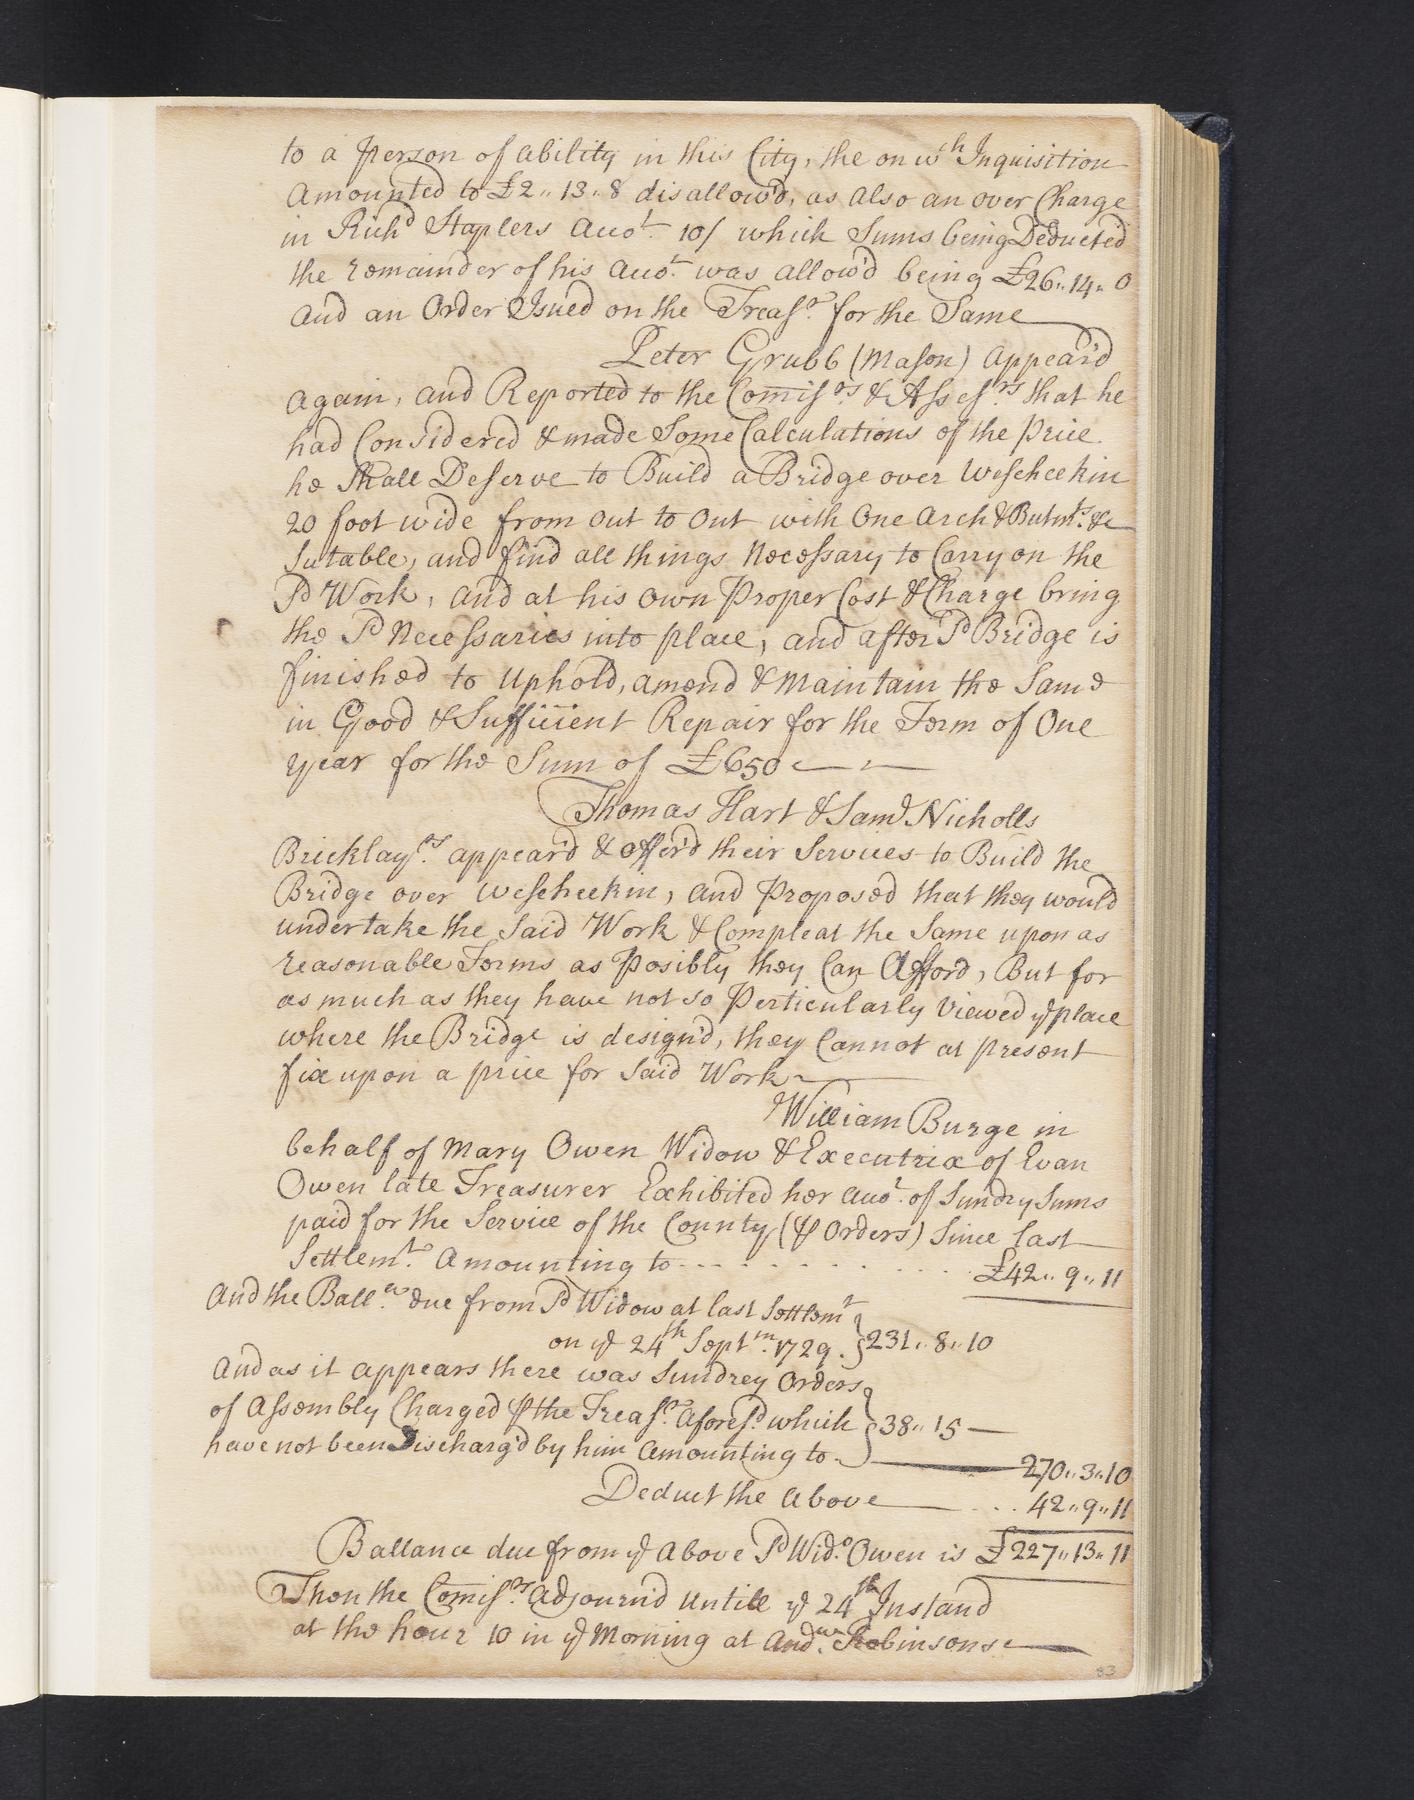 to a person of ability in this City, the on wch Inquisition
Amounted to £2,, 13,, 8 disallow'd, as also an over Charge
in Richd Staplers Accot. 10/ which Sums being Deducted
the remainder of his Accot. was allow'd being £26,, 14,, 0
and an Order Issued on the Treasr. for the Same
Peter Grubb (Mason) appear'd
again, and Reported to the Comisrs. & Assessrs. that he
had Considered & made Some Calculations of the price
he Shall Deserve to Build a Bridge over Wesheekin
20 foot wide from out to out with One Arch & Butmts. &c
Sutable, and find all things Necessary to Carry on the
Sd Work, and at his own Proper Cost & Charge bring
the Sd Necessaries into place, and after Sd Bridge is
finished to Uphold, amend & Maintain the Same
in Good & Sufficient Repair for the Term of One
year for the Sum of £650
Thomas Hart & Saml Nicholls
Bricklayrs. appear'd & offer'd their Services to Build the
Bridge over Wesheekin, and Proposed that they would
undertake the Said Work & Compleat the Same upon as
reasonable Terms as Posibly they Can Afford, But for
as much as they have not so Perticularly Viewed ye place
where the Bridge is design'd, they Cannot at present
fix upon a price for Said Work
William Burge in
behalf of Mary Owen Widow & Executrix of Evan
Owen late Treasurer Exhibited her Accot. of Sundry Sums
paid for the Service of the County (p Orders) Since last
Settlemt. Amounting to - - - - - - - - £42,, 9,, 11
And the Ballce. due from Sd Widow at last Settlemt
on ye 24th Septm. 1729. } 231,, 8,, 10
And as it appears there was Sundrey Orders
of Assembly Charged p the Treasr. aforesd. which } 38,, 15 —
have not been Discharg'd by him Amounting to
270,, 3,, 10
Deduct the above . . . 42,, 9,, 11
Ballance due from ye above Sd Wido. Owen is £227,, 13,, 11
Then the Comisrs. adjourn'd Untill ye 24th Instand
at the hour 10 in ye Morning at Andw. Robinsons
83